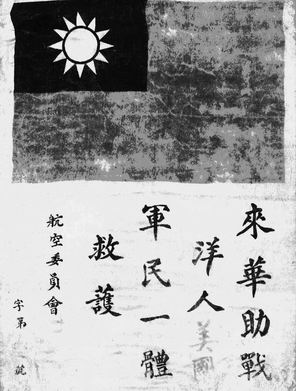 來華助戰
洋人美國
軍民一體
救護
航空委員會
字第 號